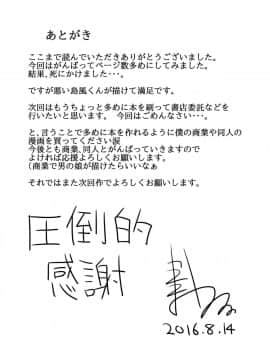 あとがき
ここまで読んでいただきありがとうございました。
今回はがんばってページ数多めにしてみました。
結果、死にかけました・・・。
ですが悪い島風くんが描けて満足です。
次回はもうちょっと多めに本を刷って書店委託などを
行いたいと思います。 今回はごめんなさい・・・。
と、言うことで多めに本を作れるように僕の商業や同人の
漫画を買ってください涙
今後とも商業、同人とがんばっていきますので
よければ応援よろしくお願いします。
(商業で男の娘が描けたらいいなぁ
それではまた次回作でよろしくお願いします。
圧倒的
感謝
2016.8.14